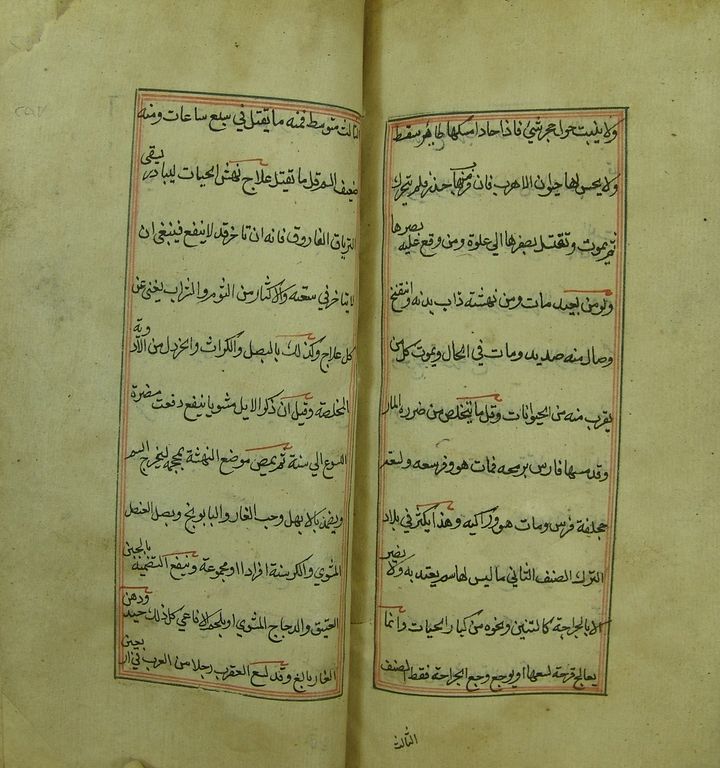 ولا ينبت حولها حجر شي فاذا حاذا مسكها طاهر سقط
ولا يحس لها حيوان الا هرب فان قرب منها حذر فلم يتحرك
ثم يموت وتقتل بصفرها الي غلوة ومن وقع عليه بصرها
ولو من بعيد مات ومن نهشته ذاب بدنه وانتفخ
وصال منه صديد ومات في الحال ويموت كل من
يقرب منه من الحيوانات وقل ما يتخلص من ضرره المار
وقد مسها فارس برمحه فمات هو وفرسه ولسعت
جحفلة فرس ومات هو وراكبه وهذا يكثر في بلاد
الترك الصنف الثاني ما ليس لها سم يعتد به ولا يضر
الا بالجراحة كالتنين ونحوه من كبار الحيات وانما
يعالج قرحة لسعها او يوجع وجع الجراحة فقط الصنف
الثالث
الثالث متوسط فمنه ما يقتل في سبع ساعات ومنه
ضعيف السم قل ما يقتل علاج نهش الحيات ليبادر يسقى
الترياق الفاروق فانه ان تاخر قد لا ينفع فينبغي ان
لا يتاخر في سقيه والاكثار من الثوم والشراب يغني عن
كل علاج وكذلك بالبصل والكراث والخردل من الادوية
المخلصة وقيل ان ذكر الايل مشويا ينفع دفعت مضرة
السوع الي سنة ثم يمص موضع النهشة بمحجمة ليخرج السم
ويضمد بالابهل وحب الغار والبابونج وبصل العنصل
المشوي والكرسنة افرادا او مجموعة وينفع التضميد بالجبن
العتيق والدجاج المشوي او بلحم الافاعي كل ذلك جيد ودهن
الغار بالغ وقد لسع العقرب رجلا من العرب في اربعين